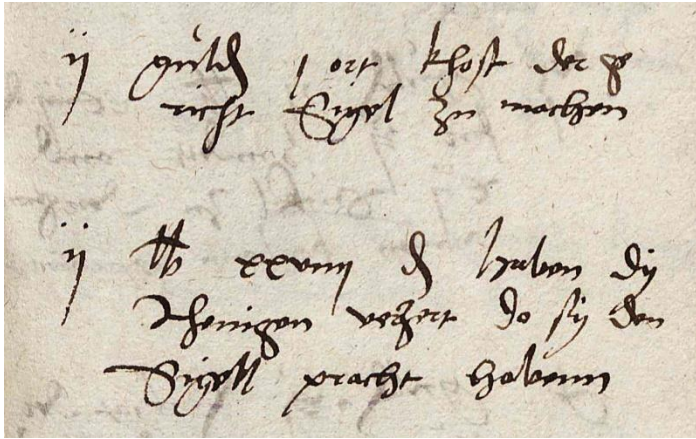 ij guld j ort khost der ge
richt Sigel zu machen
ij lb xxviiij d haben dy
verzert do sy den
Sigell pracht habenn